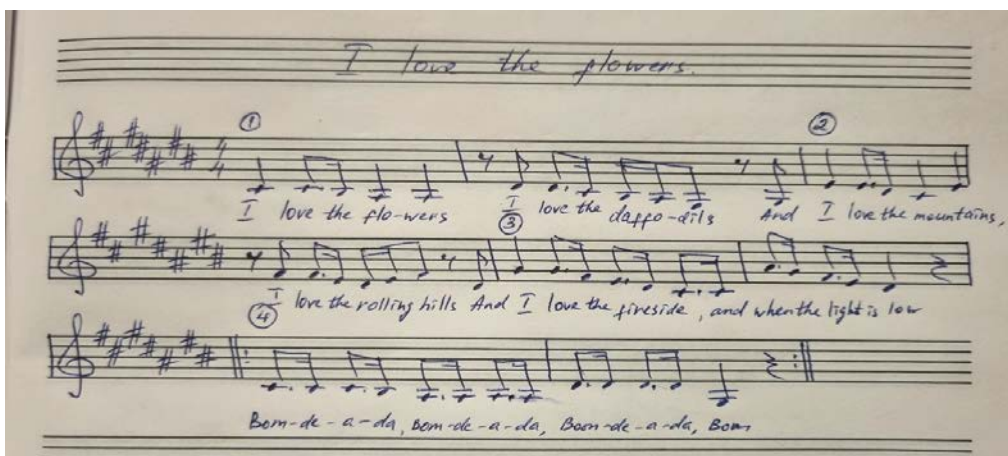 I love the flowers.
①
②
I love the flo-wers I love the daffo-dils And I love the mountains,
③
I love the rolling hills And I love the fireside, and when the light is low
④
Bom-de-a-da, Bom-de-a-da, Boom-de-a-da, Bom